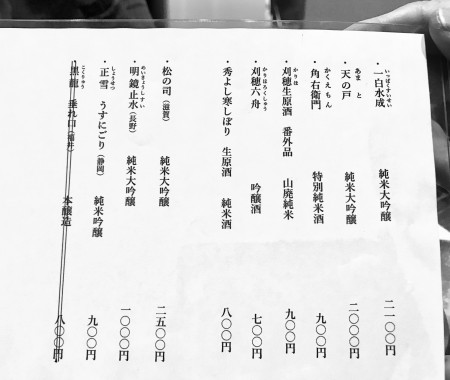 ・一白水成 いっぱくすいせい 純米大吟醸 二一〇〇円
・天の戸 あまと 純米大吟醸 二〇〇〇円
・角右衛門 かくえもん 特別純米酒 九〇〇円
・刈穂生原酒 かりほ 番外品 山廃純米 九〇〇円
・刈穂六舟 かりほろくしゅう 吟醸酒 七〇〇円
・秀よし寒しぼり 生原酒 純米酒 八〇〇円
・松の司(滋賀) 純米大吟醸 二五〇〇円
・明鏡止水(長野) めいきょうしすい 純米大吟醸 一〇〇〇円
・正雪 しょうせつ うすにごり(静岡) 純米吟醸 九〇〇円
・黒龍 こくりゅう 垂れ口(福井) 本醸造 八〇〇円